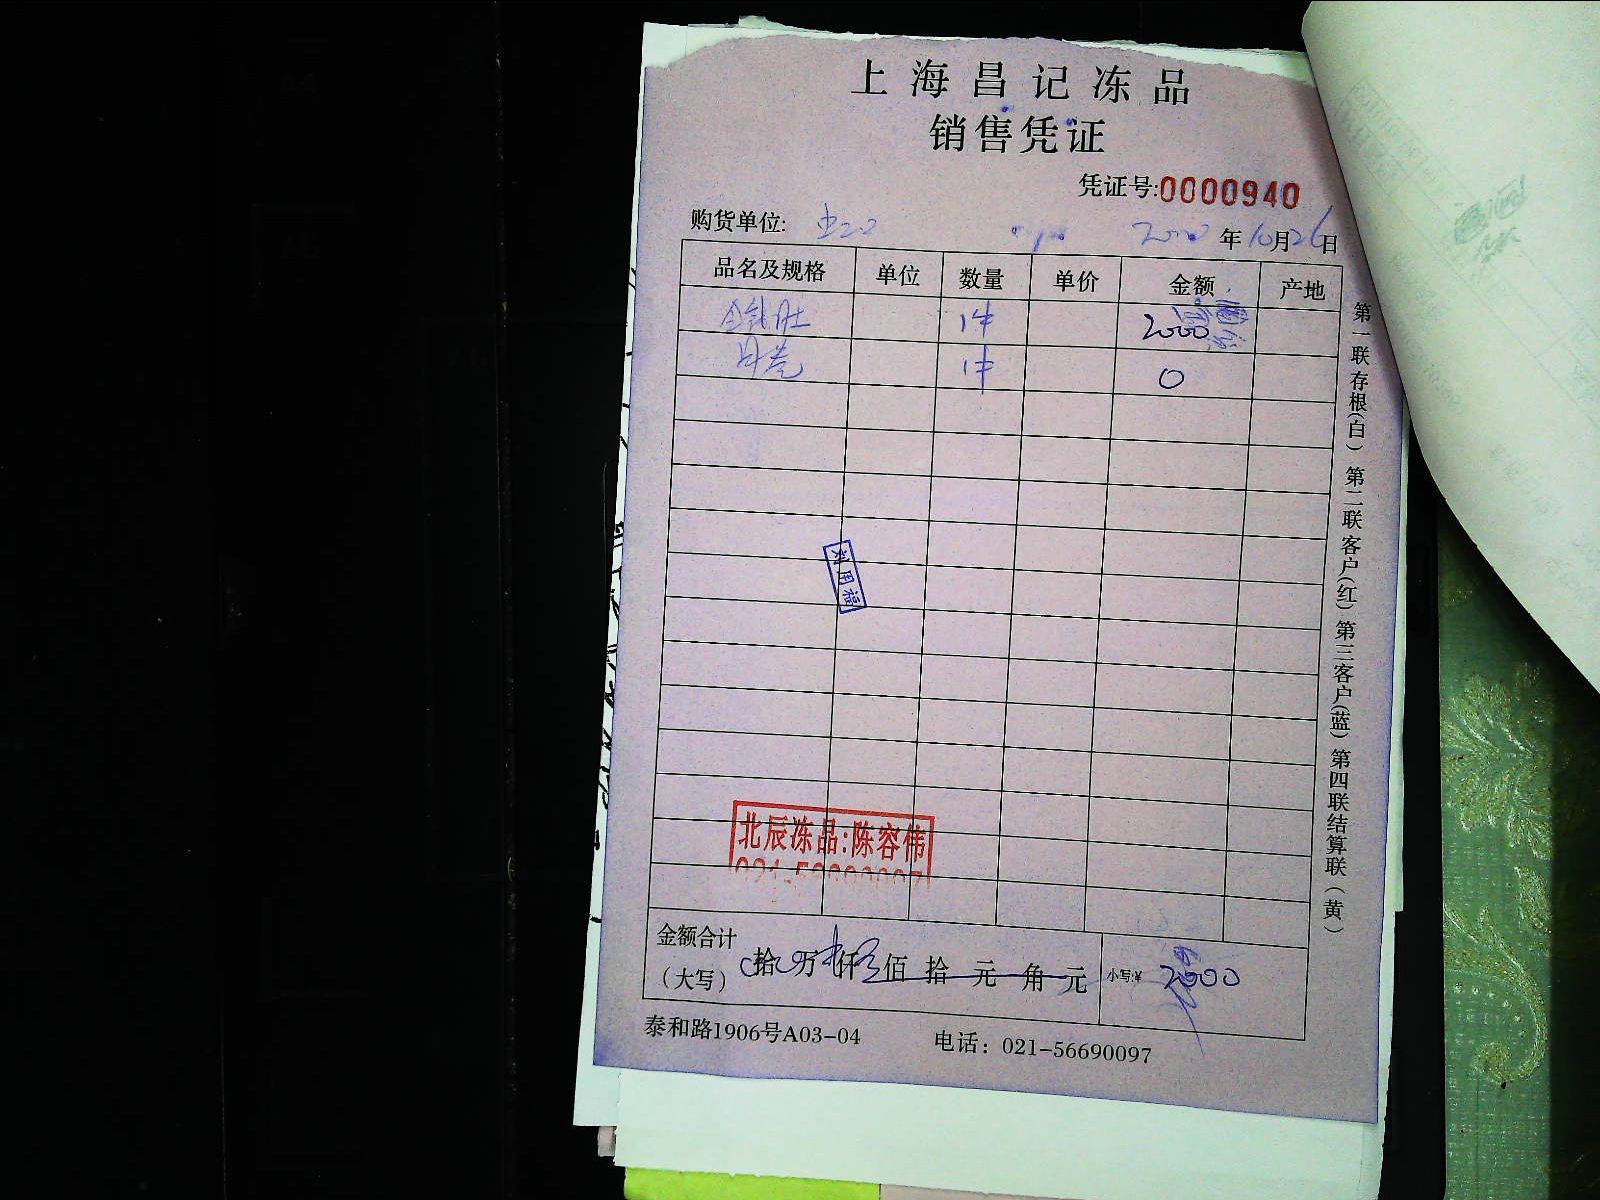 上海昌记冻品
销售凭证
凭证号:0000940
购货单位: 年10月26日
品名及规格 单位 数量 单价 金额 产地
1件 2000
1件 0
刘用福
北辰冻品:陈容伟
金额合计（大写） 拾 万 仟 佰 拾 元 角 元 小写:¥ 2000
泰和路1906号A03-04 电话：021-56690097
第一联存根(白) 第二联客户(红) 第三客户(蓝) 第四联结算联(黄)